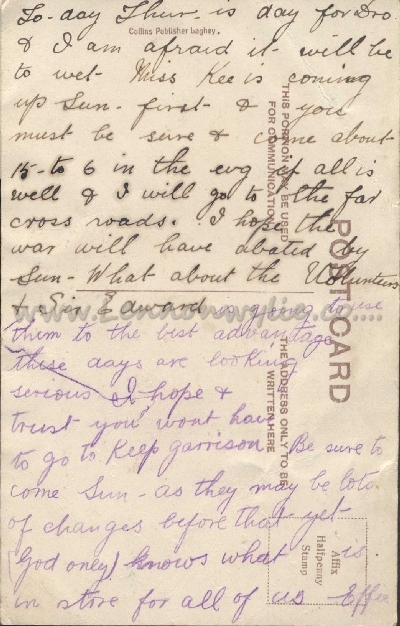 To-day Thur is day for Dro.
Collins Publisher Laghey.
& I am afraid it will be
to wet- Miss Kee is coming
up Sun- first & you
must be sure & come about
15-to 6 in the evg if all is
well & I will go to the far
cross roads. I hope the
war will have abated by
Sun- What about the Volunteers
& Sir Edward is going to use
them to the best advantage
these days are looking
serious I hope &
trust you wont have
to go to Keep garrison. Be sure to
come Sun- as they may be lots
of changes before that yet
(God only) knows what is
in store for all of us Effie
POST CARD
THIS PORTION MAY BE USED
FOR COMMUNICATION
THE ADDRESS ONLY TO BE
WRITTEN HERE
Affix
Halfpenny
Stamp